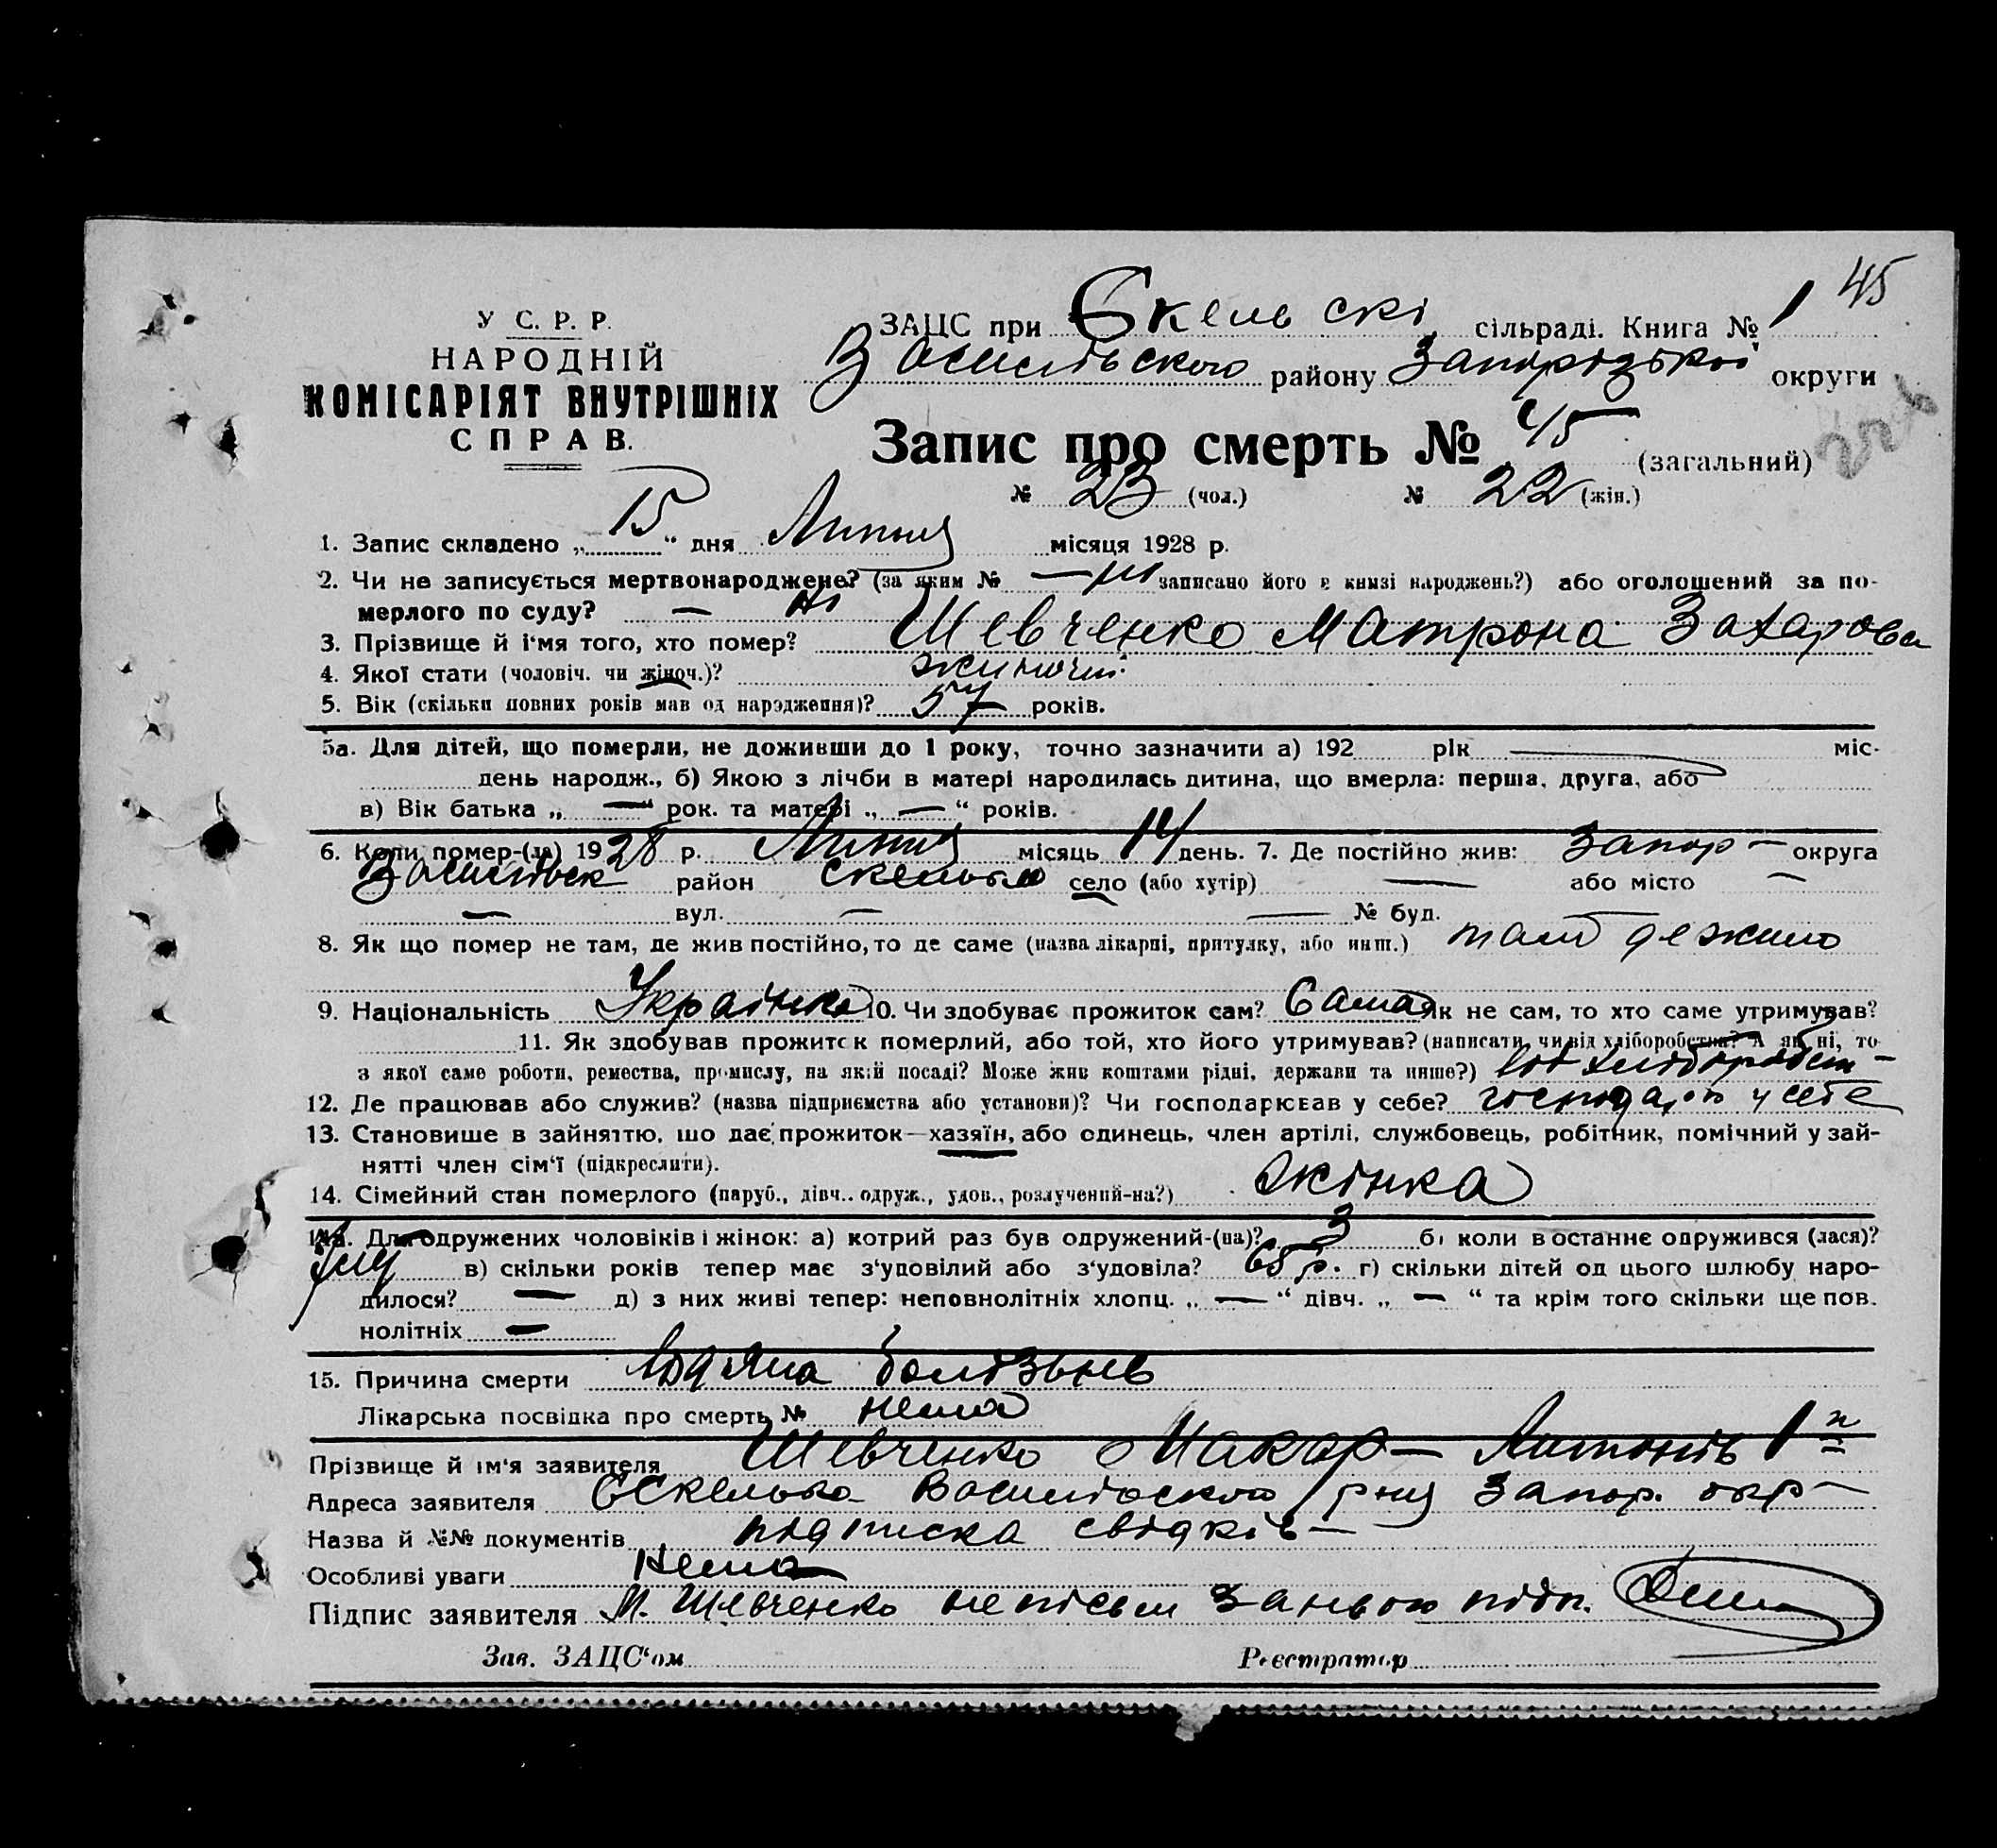 45
У С. Р. Р.
НАРОДНІЙ
КОМІСАРІЯТ ВНУТРІШНІХ
СПРАВ.
ЗАЦС при Скельскі сільраді. Книга № 1
Василівського району Запорізької округи
Запис про смерть № 45 (загальний)
№ 23 (чол.) № 22 (жін.)
1. Запис складено „ 15 “ дня Липня місяця 1928 р.
2. Чи не записується мертвонароджене? (за яким № — ні записано його в книзі народжень?) або оголошений за по-
мерлого по суду? — ні
3. Прізвище й і'мя того, хто помер? Шевченко Матрона Захарова
4. Якої стати (чоловіч. чи жіноч.)? жиночий
5. Вік (скільки повних років мав од народження)? 57 років.
5а. Для дітей, що померли, не доживши до 1 року, точно зазначити а) 192 рік — міс-
день народж., б) Якою з лічби в матері народилась дитина, що вмерла: перша, друга, або
в) Вік батька „ — “ рок. та матері „ — “ років.
6. Коли помер-(ла) 1928 р. Липня місяць 14 день. 7. Де постійно жив: Запор — округа
Василівськ район Скелька село (або хутір) — або місто —
— вул. — — № буд. —
8. Як що помер не там, де жив постійно, то де саме (назва лікарні, притулку, або инш.) там де жило
9. Національність Українка 10. Чи здобуває прожиток сам? Сама Як не сам, то хто саме утримував?
11. Як здобував прожиток померлий, або той, хто його утримував? (написати, чи від хліборобства? А як ні, то
з якої саме роботи, ремества, промислу, на якій посаді? Може жив коштами рідні, держави та инше?) від хліборобст-
12. Де працював або служив? (назва підприємства або установи)? Чи господарював у себе? господарю у себе
13. Становище в зайняттю, що дає прожиток—хазяїн, або одинець, член артілі, службовець, робітник, помічний у зай-
нятті член сім'ї (підкреслити).
14. Сімейний стан померлого (паруб., дівч., одруж., удов., розлучений-на?) жінка
14а. Для одружених чоловіків і жінок: а) котрий раз був одружений-(на)? 3 б) коли в останнє одружився (лася)?
в) скільки років тепер має з'удовілий або з'удовіла? 65 р. г) скільки дітей од цього шлюбу наро-
дилося? — д) з них живі тепер: неповнолітніх хлопц. „ — “ дівч. „ — “ та крім того скільки ще пов.
нолітніх —
15. Причина смерти болізьнь
Лікарська посвідка про смерть № нема
Прізвище й ім'я заявителя Шевченко Макар — Антонів 1й
Адреса заявителя С Скелька Василівского р-ну Запор. окр—
Назва й №№ документів підписка свідків —
Особливі уваги Нема
Підпис заявителя М. Шевченко неписьм За нього підп.
Зав. ЗАЦС'ом
Реєстратор